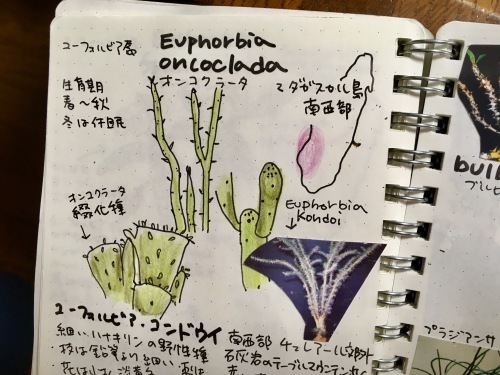 ユーフォルビア属
Euphorbia
oncoclada
オンコクラータ
生育期
春〜秋
冬は休眠
マダガスカル島
南西部
オンコクラータ
綴化種
Euphorbia
Kondoi
ユーフォルビア・コンドウイ
細いハナキリンの野性種
枝は鉛筆より細い
南西部 チュレアール郊外
石灰岩のテーブルマウンテン
bulb
プラジアンサ